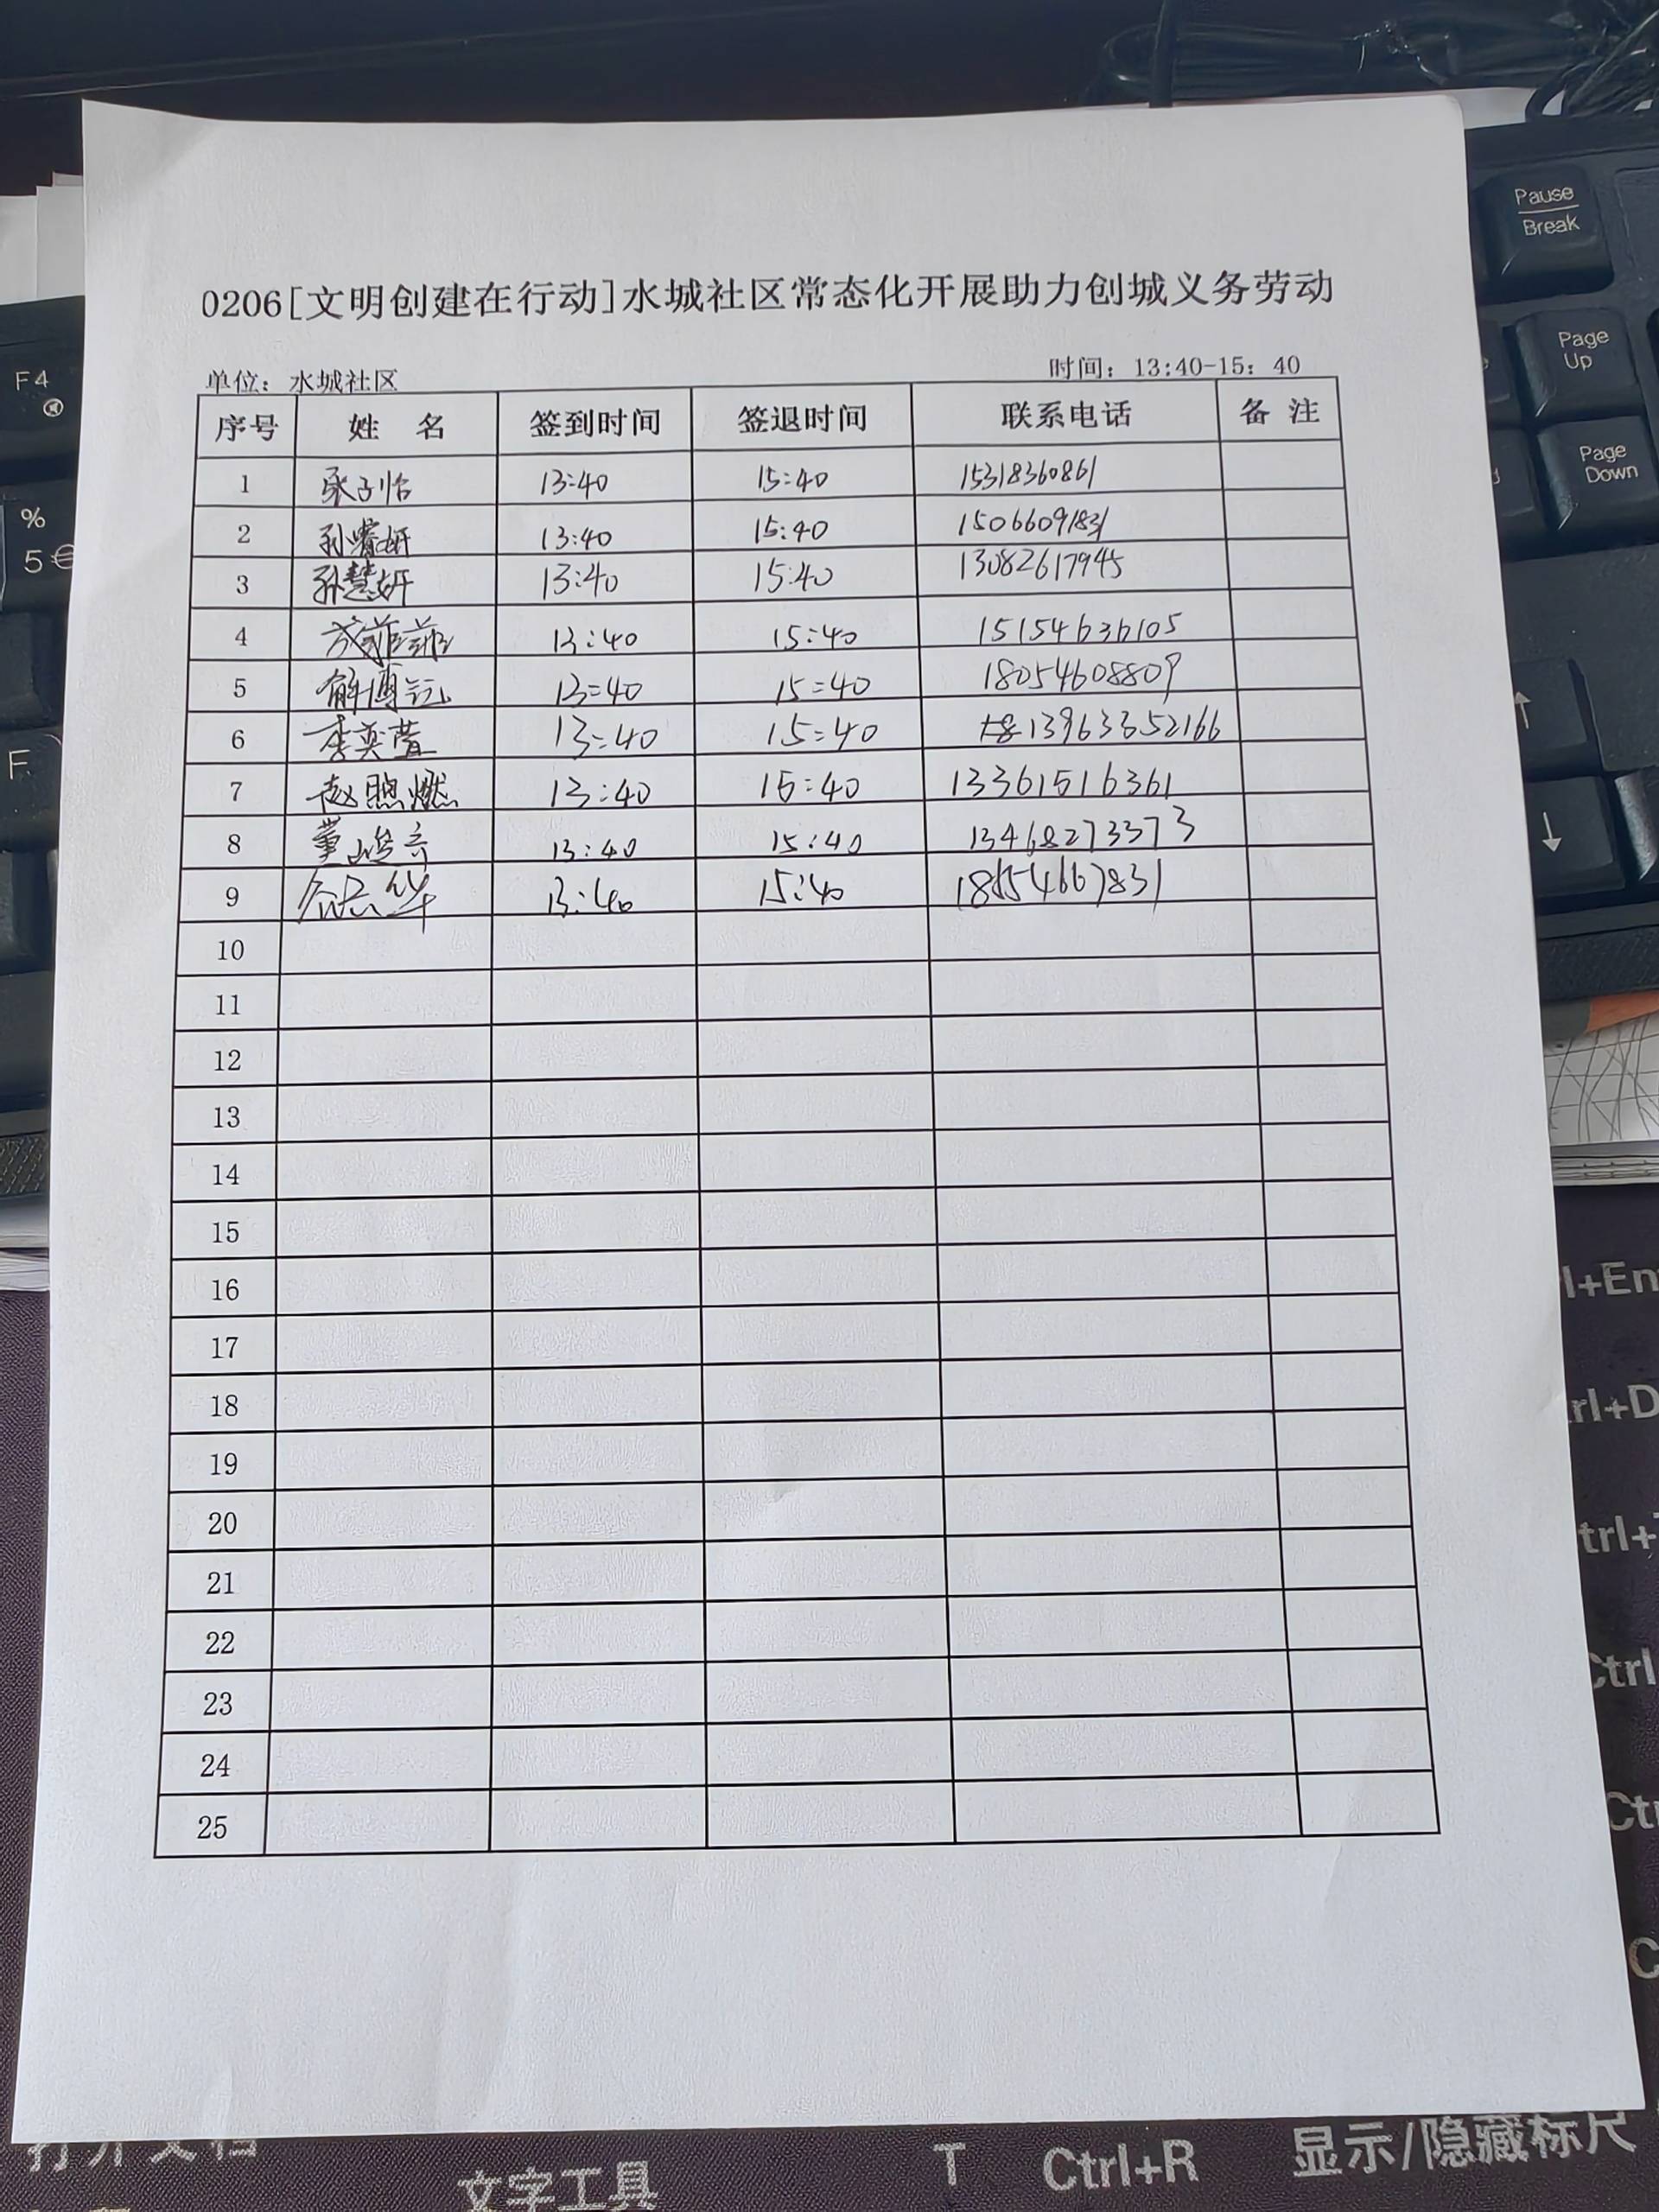 Pause
Break
0206[文明创建在行动]水城社区常态化开展助力创城义务劳动
Page
Up
F4
单位：水城社区 时间：13:40-15：40
序号 姓 名 签到时间 签退时间 联系电话 备 注
Page
Down
1 13:40 15:40 15318360861
%
5 €
2 孙睿妍 13:40 15:40 15066091831
3 孙慧妍 13:40 15:40 13082617945
4 成菲菲 13:40 15:40 15154636105
5 解博远 13:40 15:40 18054608809
6 李奕萱 13:40 15:40 13963352166
F
7 赵熙燃 13:40 15:40 13361516361
8 董峻奇 13:40 15:40 13468273373
9 13:40 15:40
10
11
12
13
14
15
16
l+En
17
18
rl+D
19
20
trl+
21
22
Ctrl
23
24
25
Ctr
C
打开文档
文字工具 T Ctrl+R 显示/隐藏标尺